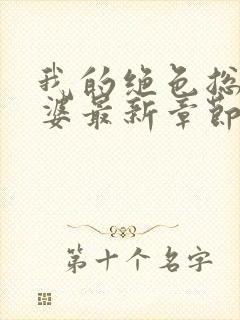 我的绝色总
婆最新章节
第十个名字